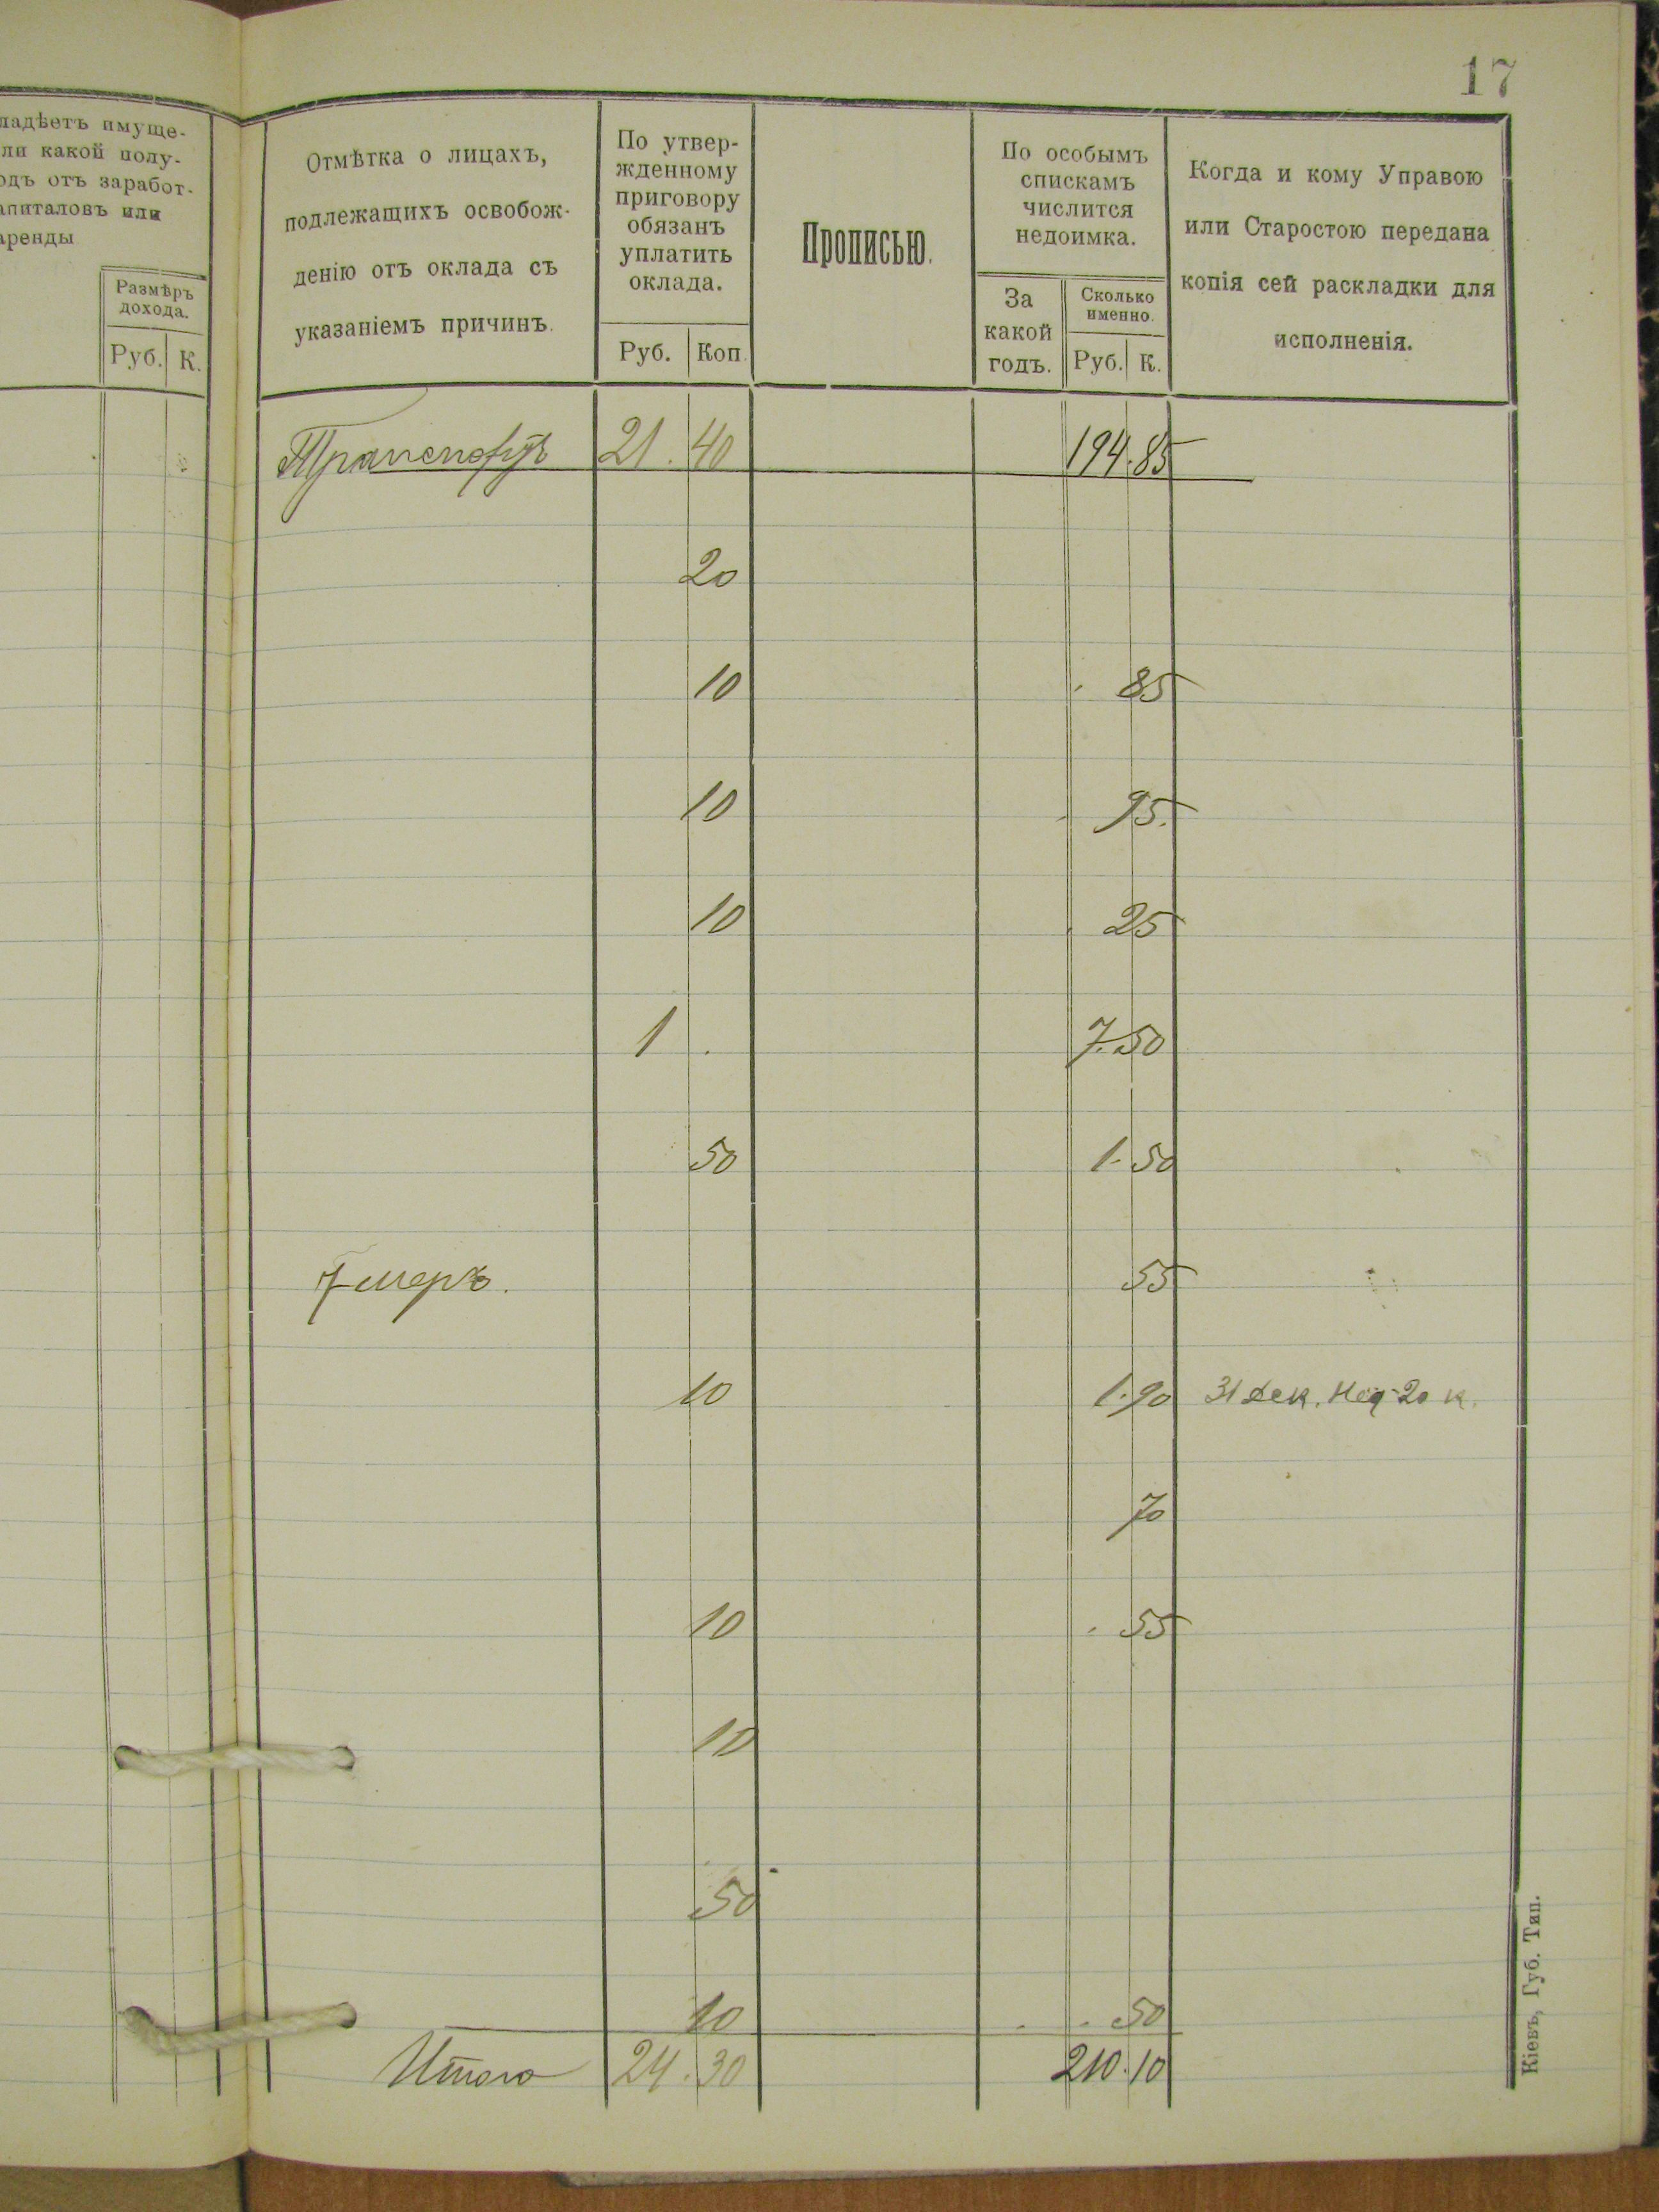 17
ладѣетъ имуще-
ли какой полу-
одъ отъ заработ-
апиталовъ или
аренды
Размѣръ
дохода.
Руб. К.
Отмѣтка о лицахъ,
подлежащихъ освобож-
денію отъ оклада съ
указаніемъ причинъ.
По утвер-
жденному
приговору
обязанъ
уплатить
оклада.
Руб. Коп.
Прописью.
По особымъ
спискамъ
числится
недоимка.
За
какой
годъ.
Сколько
именно.
Руб. К.
Когда и кому Управою
или Старостою передана
копія сей раскладки для
исполненія.
Транспортъ 21. 40 194. 85
20
10 85
10 95.
10 25
1 . 7. 50
50 1. 50
Умеръ. 55
10 1. 90 31 Дек. Нед 20 к.
70
10 55
10
50
10 50
Итого 24. 30 210. 10
Кіевъ, Губ. Тип.